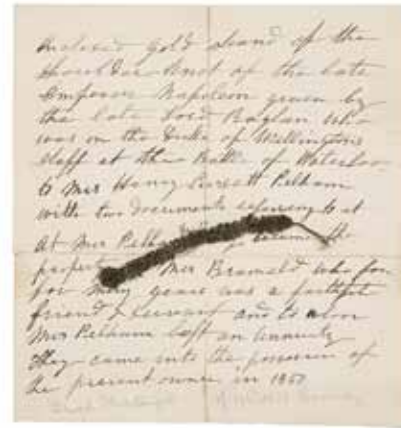 Enclosed gold strand of the
Shoulder Knot of the late
Emperor Napoleon given by
the late Lord Raglan who
was on the Duke of Wellingtons
Staff at the Battle of Waterloo
to Mrs Henry Pelham
with two documents referring to it
At Mrs became the
Mrs who for
many years was a faithful
friend & servant and to whom
Mrs Pelham left an annuity
They came into the possession of
the present owner in 1857